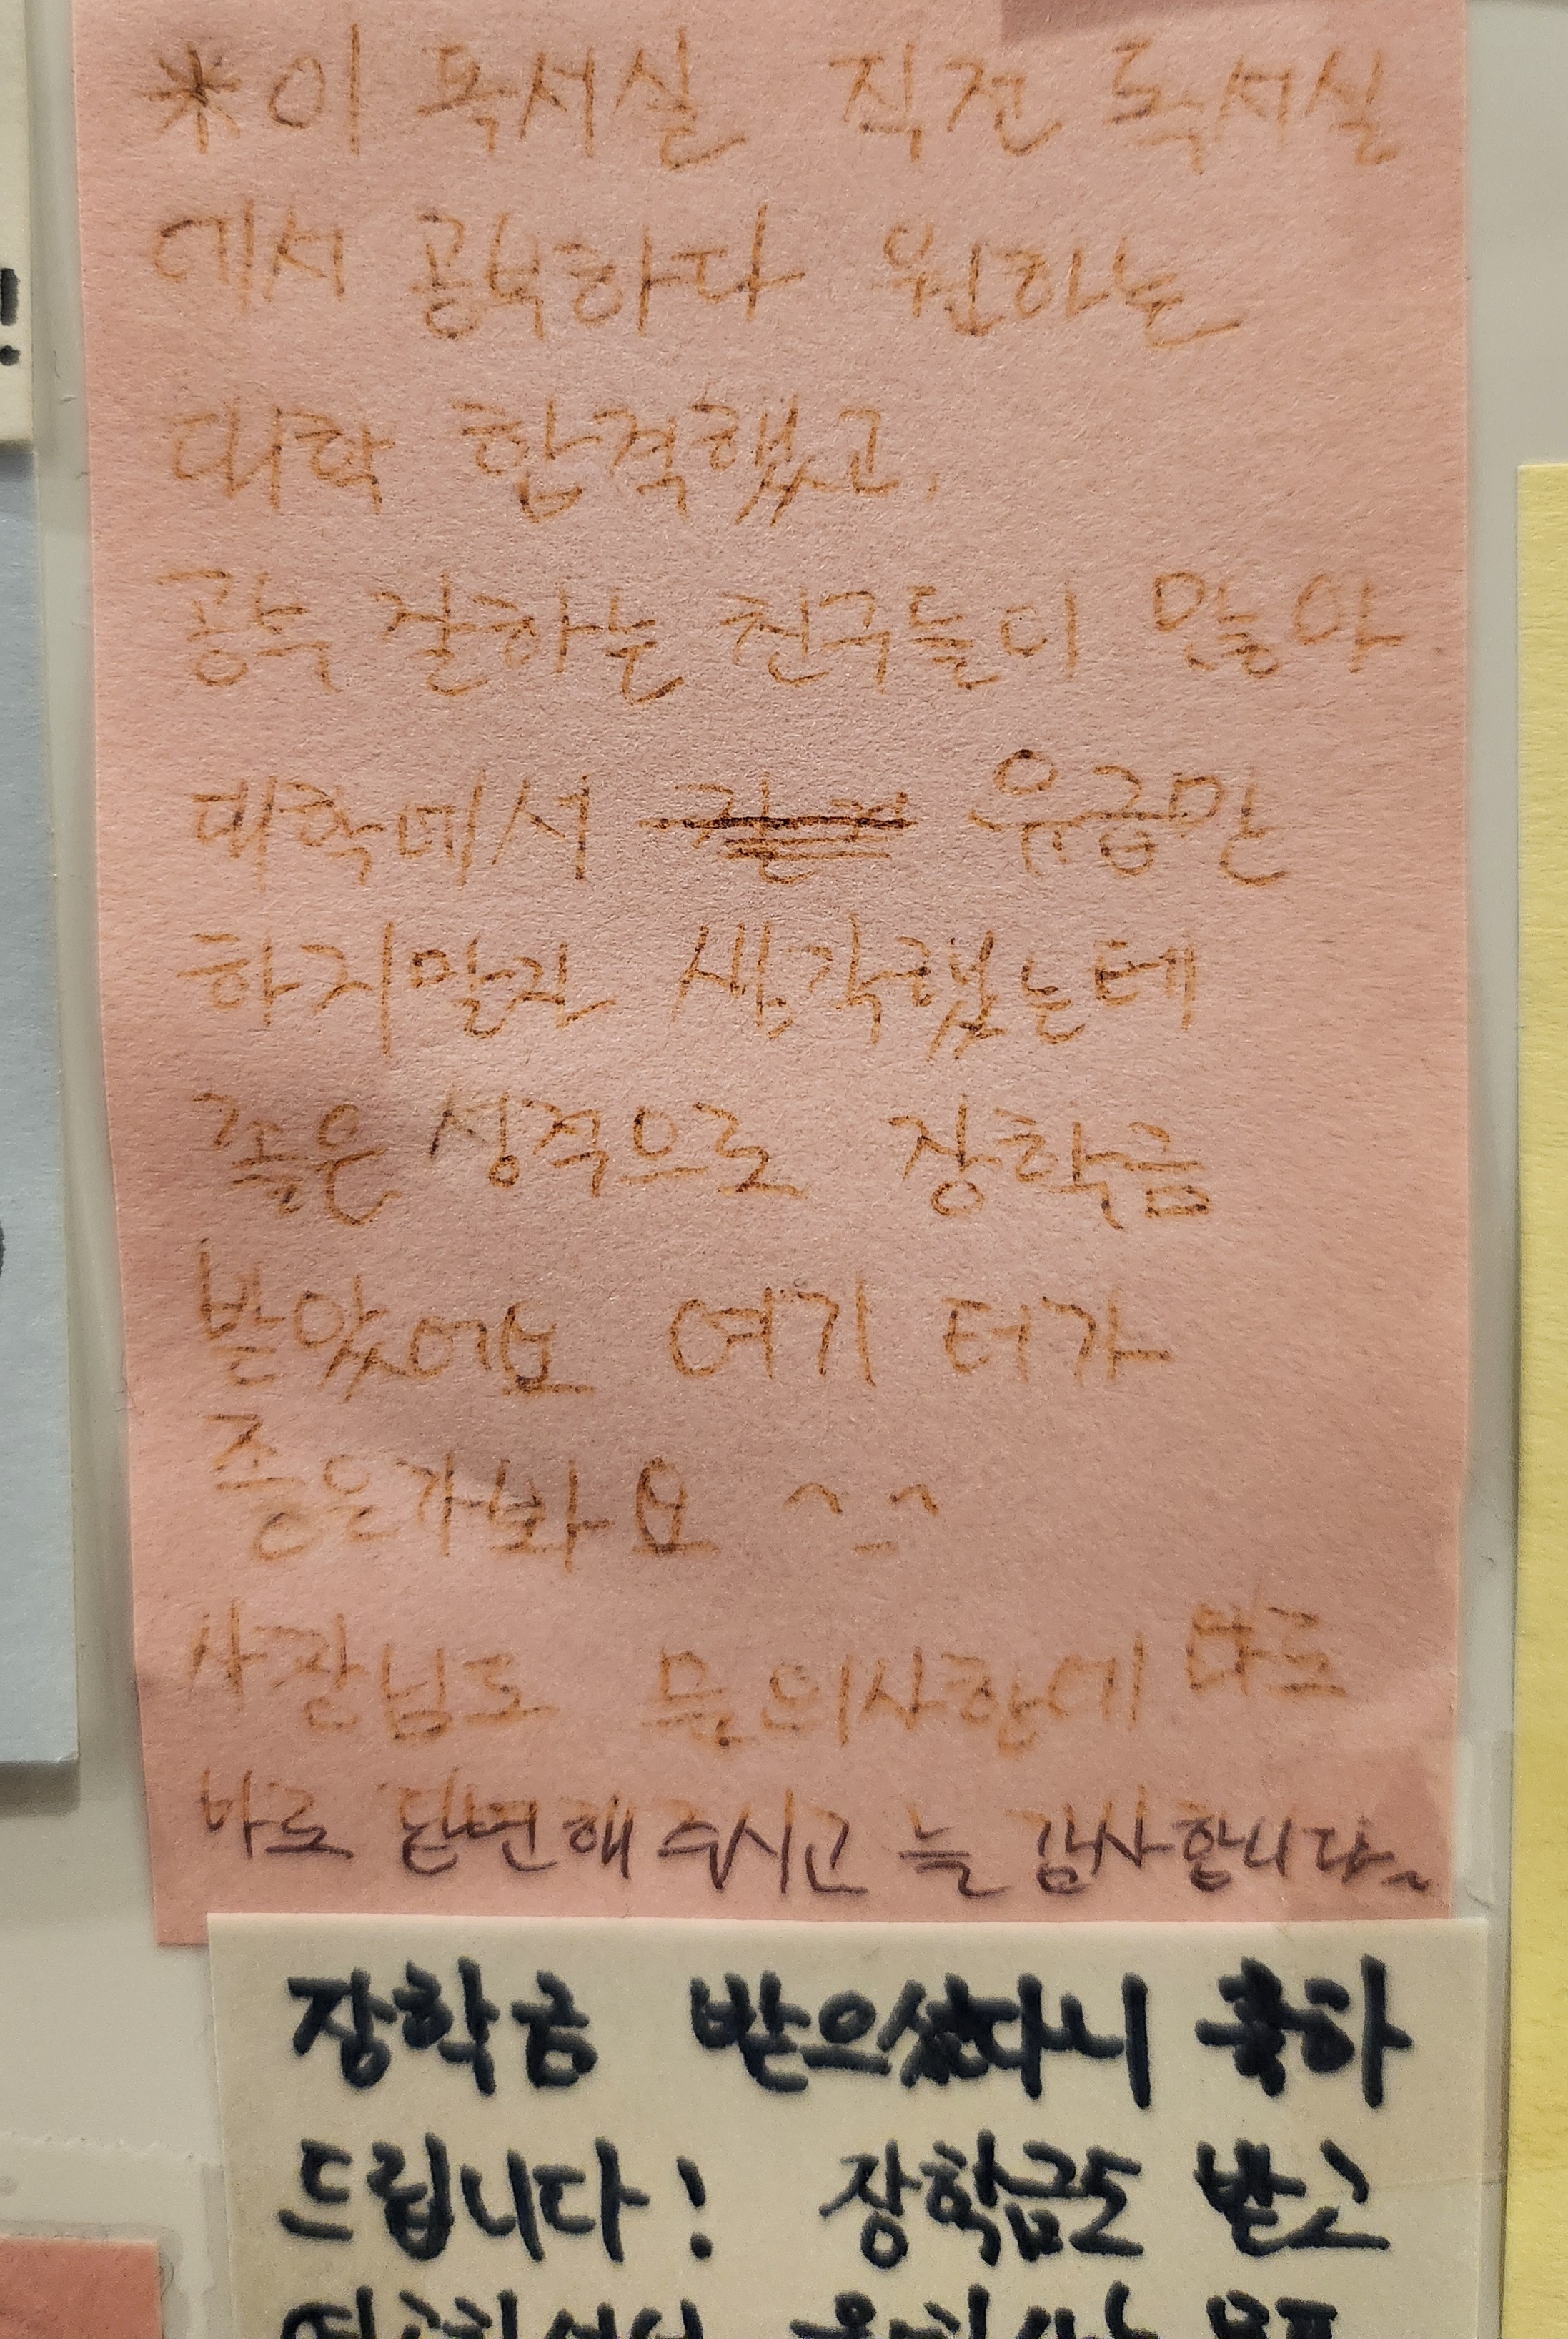 *이 독서실 직전 독서실
에서 공부하다 원하는
대학 합격했고,
공부 잘하는 친구들이 많아
대학에서 유급만
하지말잔 생각했는데
좋은 성적으로 장학금
받았어요 여기 터가
좋은가봐요 ^_^
사장님도 문의사항에 바로
바로 답변해주시고 늘 감사합니다~
장학금 받으셨다니 축하
드립니다! 장학금도 받고
!